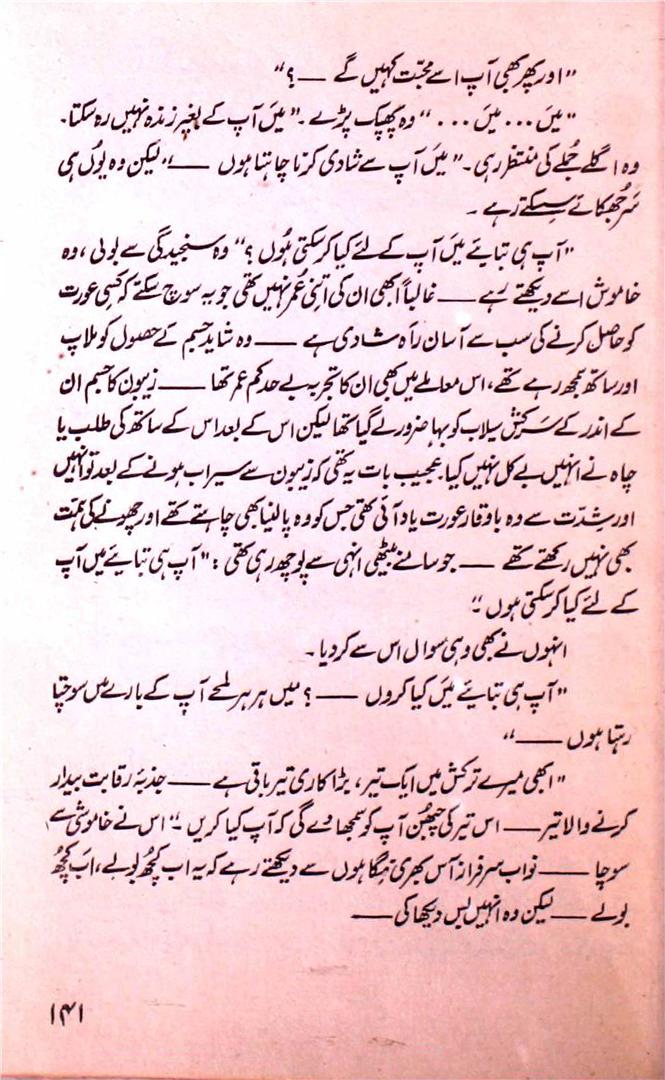 "اور پھر بھی آپ اسے محبّت کہیں گے — ؟"
"میں ... میں ... " وہ پھپک پڑے۔ "میں آپ کے بغیر زندہ نہیں رہ سکتا۔
وہ اگلے جُملے کی منتظر رہی۔ "میں آپ سے شادی کرنا چاہتا ہوں —" لیکن وہ یوں ہی
سَر جُھکائے سِسکتے رہے۔
"آپ ہی بتایئے میں آپ کے لئے کیا کر سکتی ہُوں ؟" وہ سنجیدگی سے بولی ، وہ
خاموش اسے دیکھتے رہے — غالباً ابھی ان کی اتنی عُمر نہیں تھی جو یہ سوچ سکتے کہ کسی عورت
کو حاصل کرنے کی سب سے آسان راہ شادی ہے — وہ شاید جسم کے حصول کو ملاپ
اور ساتھ سمجھ رہے تھے ، اس معاملے میں بھی ان کا تجربہ بے حد کم عمر تھا — زیبون کا جسم ان
کے اندر کے سَرکش سیلاب کو بہا ضرور لے گیا تھا لیکن اس کے بعد اس کے ساتھ کی طلب یا
چاہ نے انہیں بے کل نہیں کیا۔ عجیب بات یہ تھی کہ زیبون سے سیراب ہونے کے بعد تو انہیں
اور شِدّت سے وہ باوقار عورت یاد آئی تھی جس کو وہ پا لینا بھی چاہتے تھے اور چھونے کی ہمّت
بھی نہیں رکھتے تھے — جو سامنے بیٹھی انہی سے پوچھ رہی تھی : "آپ ہی بتایئے میں آپ
کے لئے کیا کر سکتی ہوں۔"
انہوں نے بھی وہی سوال اس سے کر دیا۔
"آپ ہی بتایئے میں کیا کروں — ؟ میں ہر ہر لمحے آپ کے بارے میں سوچتا
رہتا ہوں —"
"ابھی میرے ترکش میں ایک تیر ، بڑا کاری تیر باقی ہے — جذبۂ رقابت بیدار
کرنے والا تیر — اس تیر کی چُبھن آپ کو سمجھا دے گی کہ آپ کیا کریں۔" اس نے خاموشی سے
سوچا — نواب سرفراز آس بھری نگاہوں سے دیکھتے رہے کہ یہ اب کُچھ بولے ، اَب کُچھ
بولے — لیکن وہ انہیں بس دیکھا کی —
۱۴۱